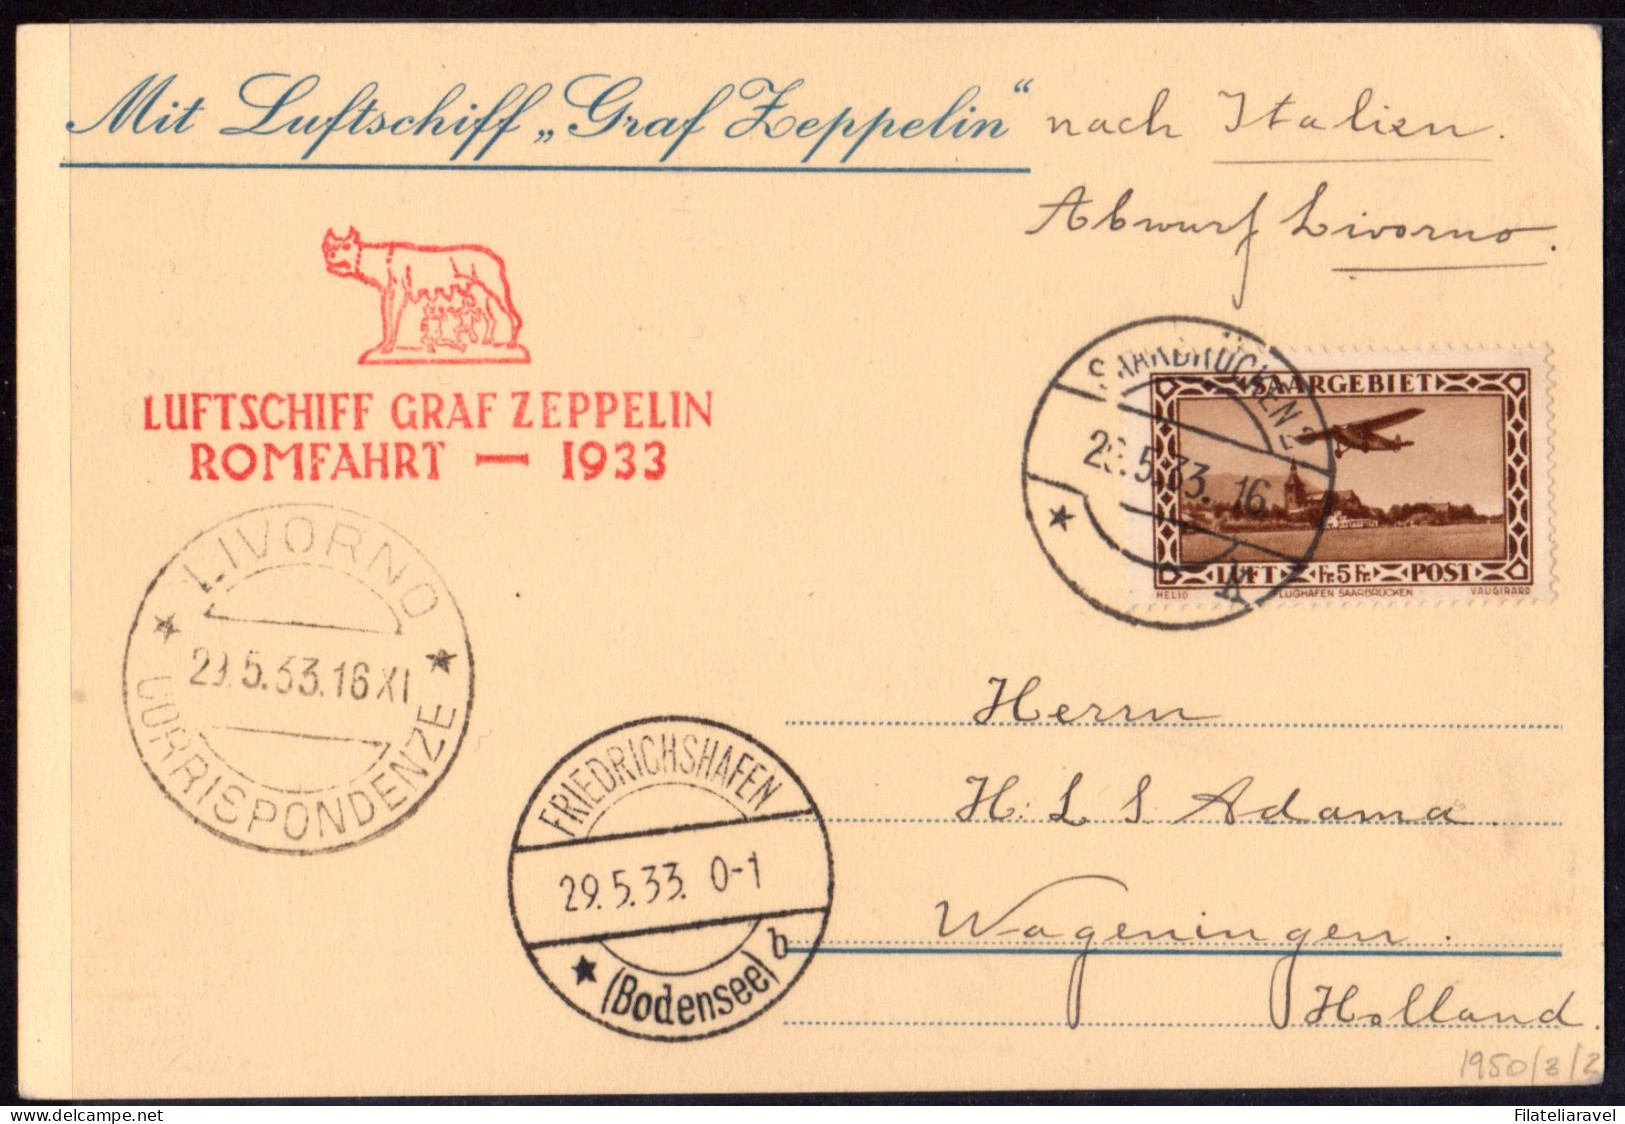 Mit Luftschiff „Graf Zeppelin“ nach Italien.
Abwurf Livorno.
LUFTSCHIFF GRAF ZEPPELIN
ROMFAHRT — 1933
SAARBRÜCKEN 2
5.33. 16
SAARGEBIET
LUFT Fr. 5 Fr. POST
HELIO FLUGHAFEN SAARBRÜCKEN VAUGIRARD
LIVORNO
29.5.33.16 XI
CORRISPONDENZE
FRIEDRICHSHAFEN
29.5.33. 0-1
(Bodensee) b
Herrn
H. L. S. Adama.
Wageningen.
Holland.
1950/3/3
Filateliaravel